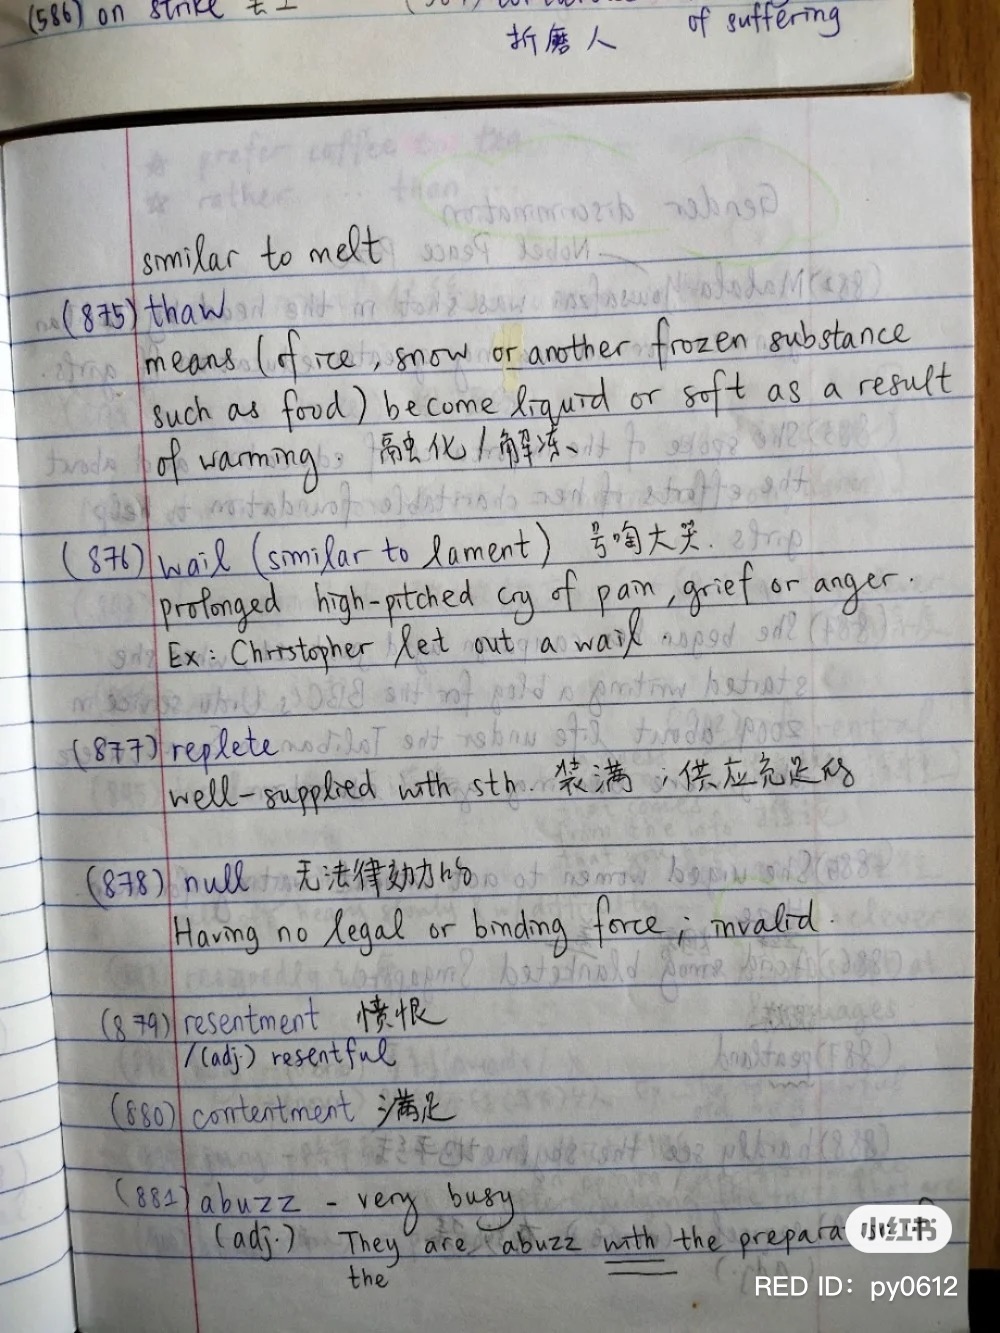 (586) on strike
折磨人 of suffering
similar to melt
(875) thaw
means (of ice, snow or another frozen substance
such as food) become liquid or soft as a result
of warming 融化/解冻
(876) wail (similar to lament) 号啕大哭.
prolonged high-pitched cry of pain, grief or anger.
Ex: Christopher let out a wail.
(877) replete
well-supplied with sth. 装满;供应充足的
(878) null 无法律効力的
Having no legal or binding force; invalid.
(879) resentment 愤恨
/(adj.) resentful
(880) contentment 满足
(881) abuzz - very busy
(adj.) They are abuzz with the prepara
the
小红书
RED ID: py0612